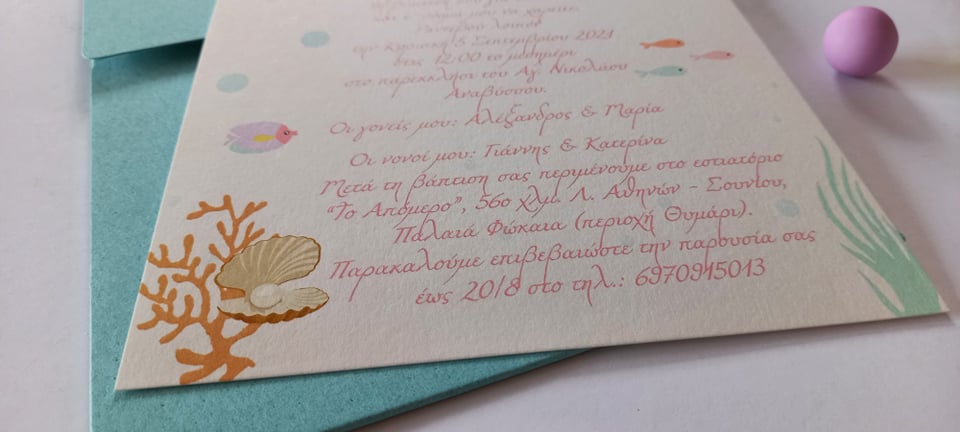 και ο νονός μου να χαρείτε.
την Κυριακή 5 Σεπτεμβρίου 2021
στις 12:00 το μεσημέρι
στο παρεκκλήσι του Αγ. Νικολάου
Αναβύσσου.
Οι γονείς μου: Αλέξανδρος & Μαρία
Οι νονοί μου: Γιάννης & Κατερίνα
Μετά τη βάπτιση σας περιμένουμε στο εστιατόριο
"Το Απόμερο", 56ο χλμ. Λ. Αθηνών - Σουνίου,
Παλαιά Φώκαια (περιοχή Θυμάρι).
Παρακαλούμε επιβεβαιώστε την παρουσία σας
έως 20/8 στο τηλ.: 6970915013